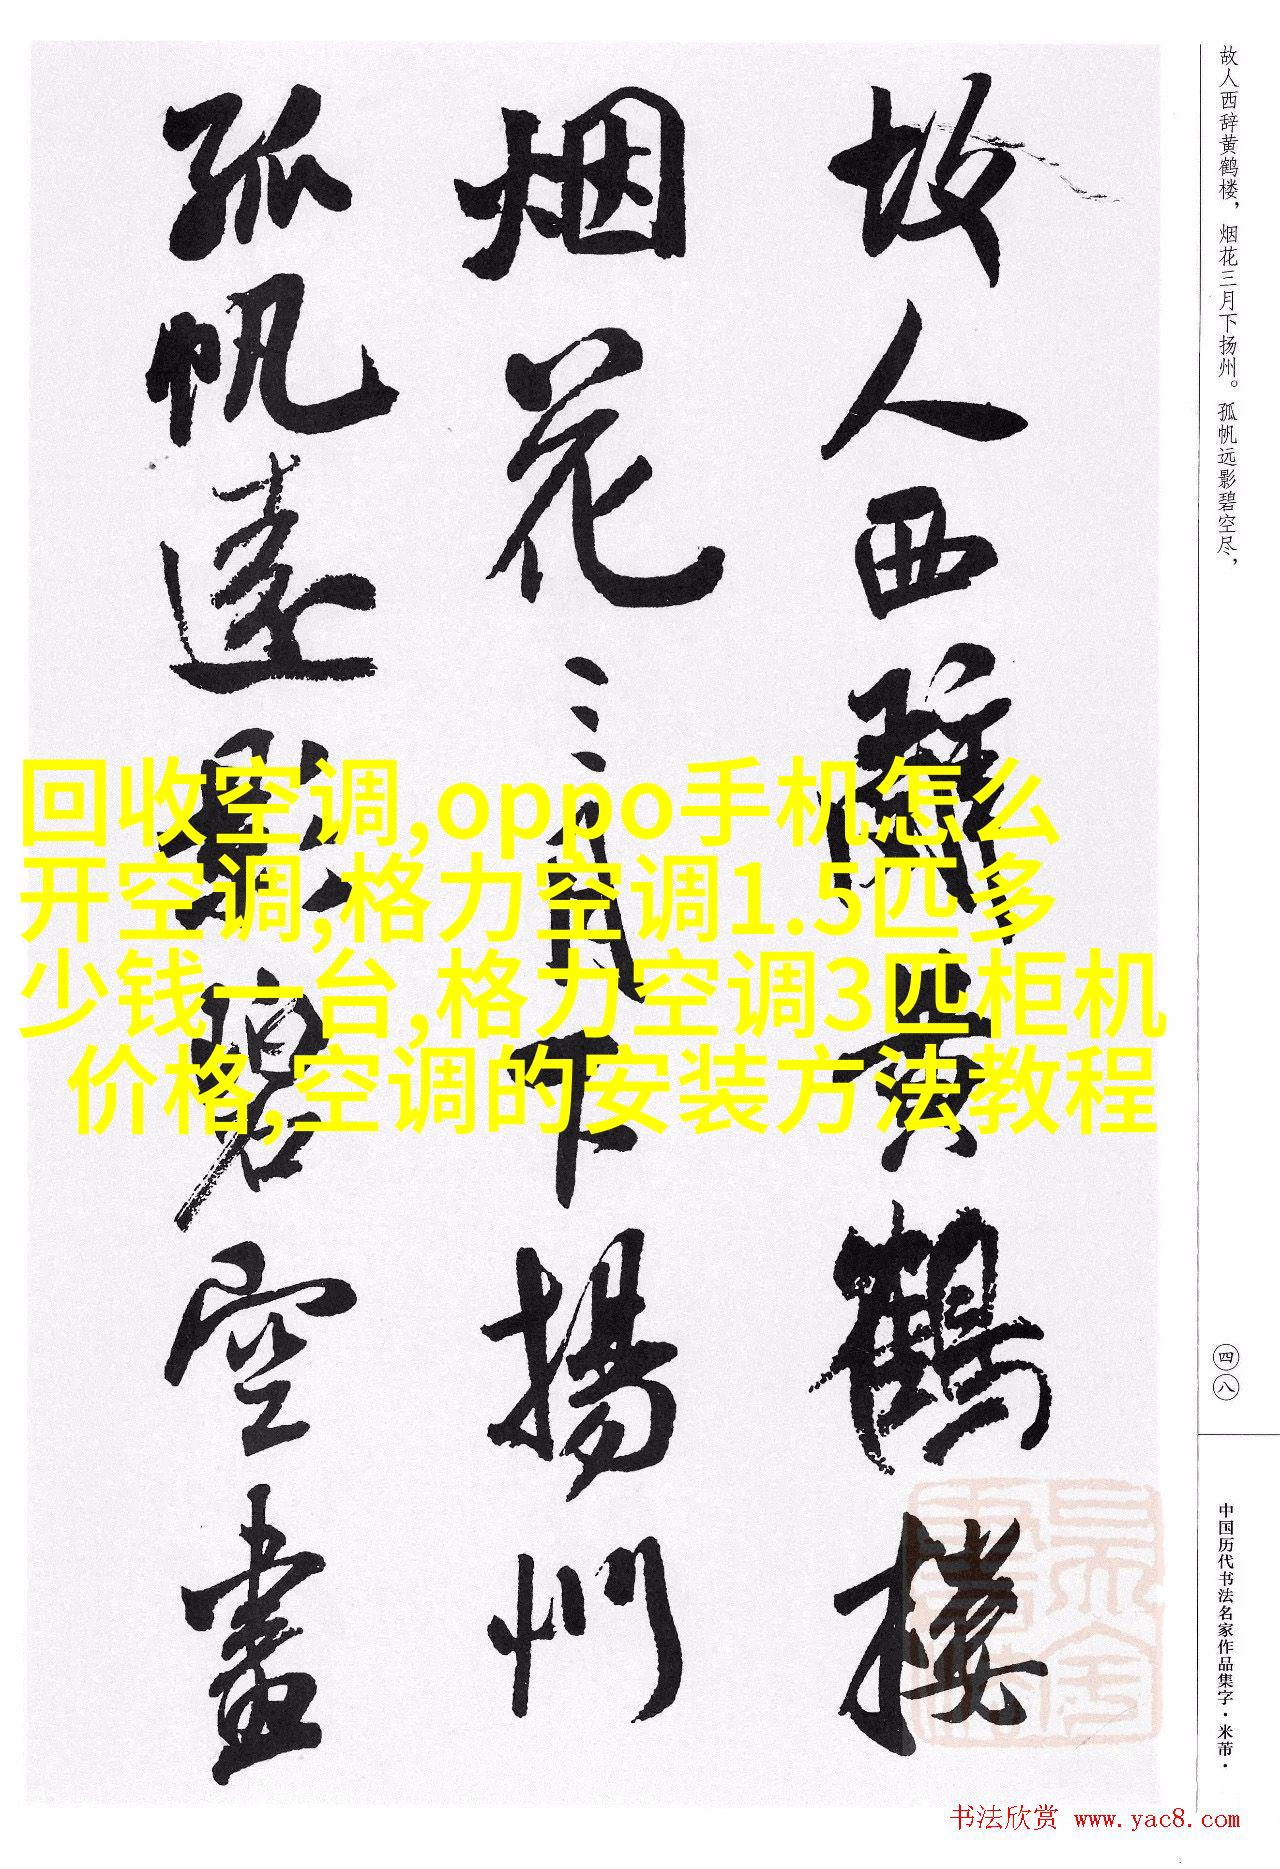 故人西辞黄鹤楼，烟花三月下扬州。孤帆远影碧空尽，
故人西辭黄鹤楼
烟花三月下揚州
孤帆遠影碧空盡
回收空调,oppo手机怎么
开空调,格力空调1.5匹多
少钱一台,格力空调3匹柜机
价格,空调的安装方法教程
四八
中国历代书法名家作品集字·米芾·
书法欣赏 www.yac8.com